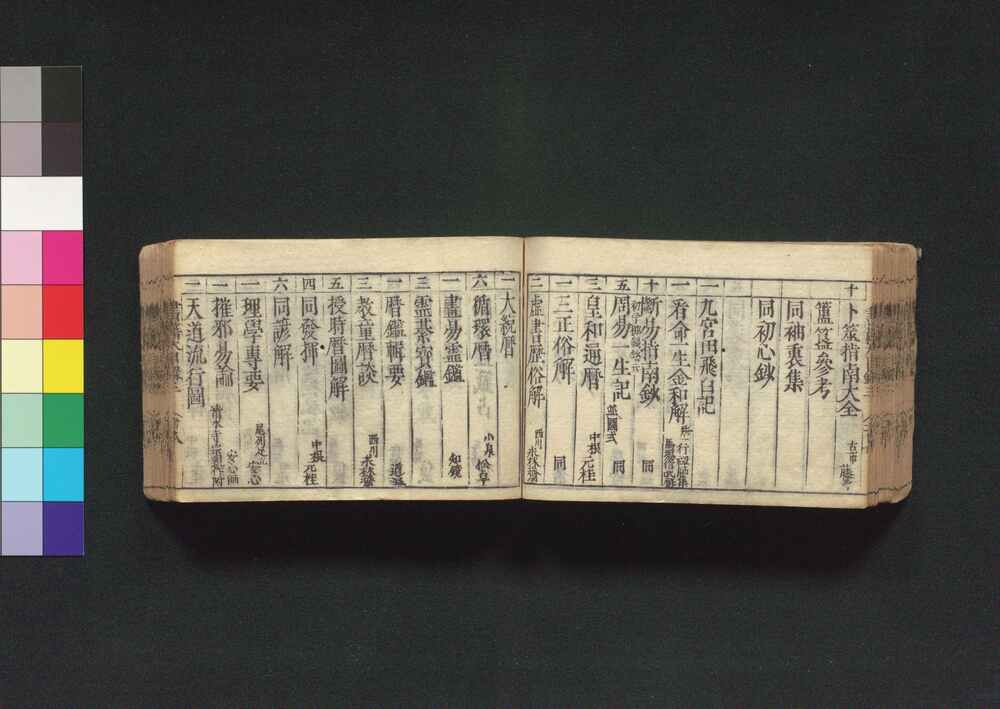 十 卜筮指南大全 古市
簠簋參考
同袖裏集
同初心鈔
一 九宮田飛白記
一 看命一生金和解
十 断易指南鈔 同
五 周易一生記 並圖式 同
三 皇和通暦 中根元桂
一 三正俗解 同
二 虚書歴俗解 西川
一 大統暦
六 循環暦 小泉松卓
一 畫易霊鑑 知鏡
三 霊棊宝鑑
一 暦鑑輯要
三 教童暦談 西川
五 授時暦圖解
四 同發揮 中根元桂
六 同諺解
一 理學專要 安心
一 摧邪易論
二 天道流行圖